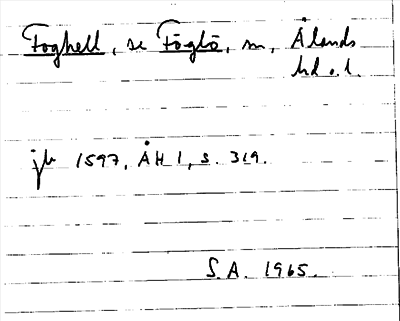 Foghell, se Föglö, sn, Ålands
hd o. l.
jb 1597, ÅH 1, s. 319.
S.A. 1965.